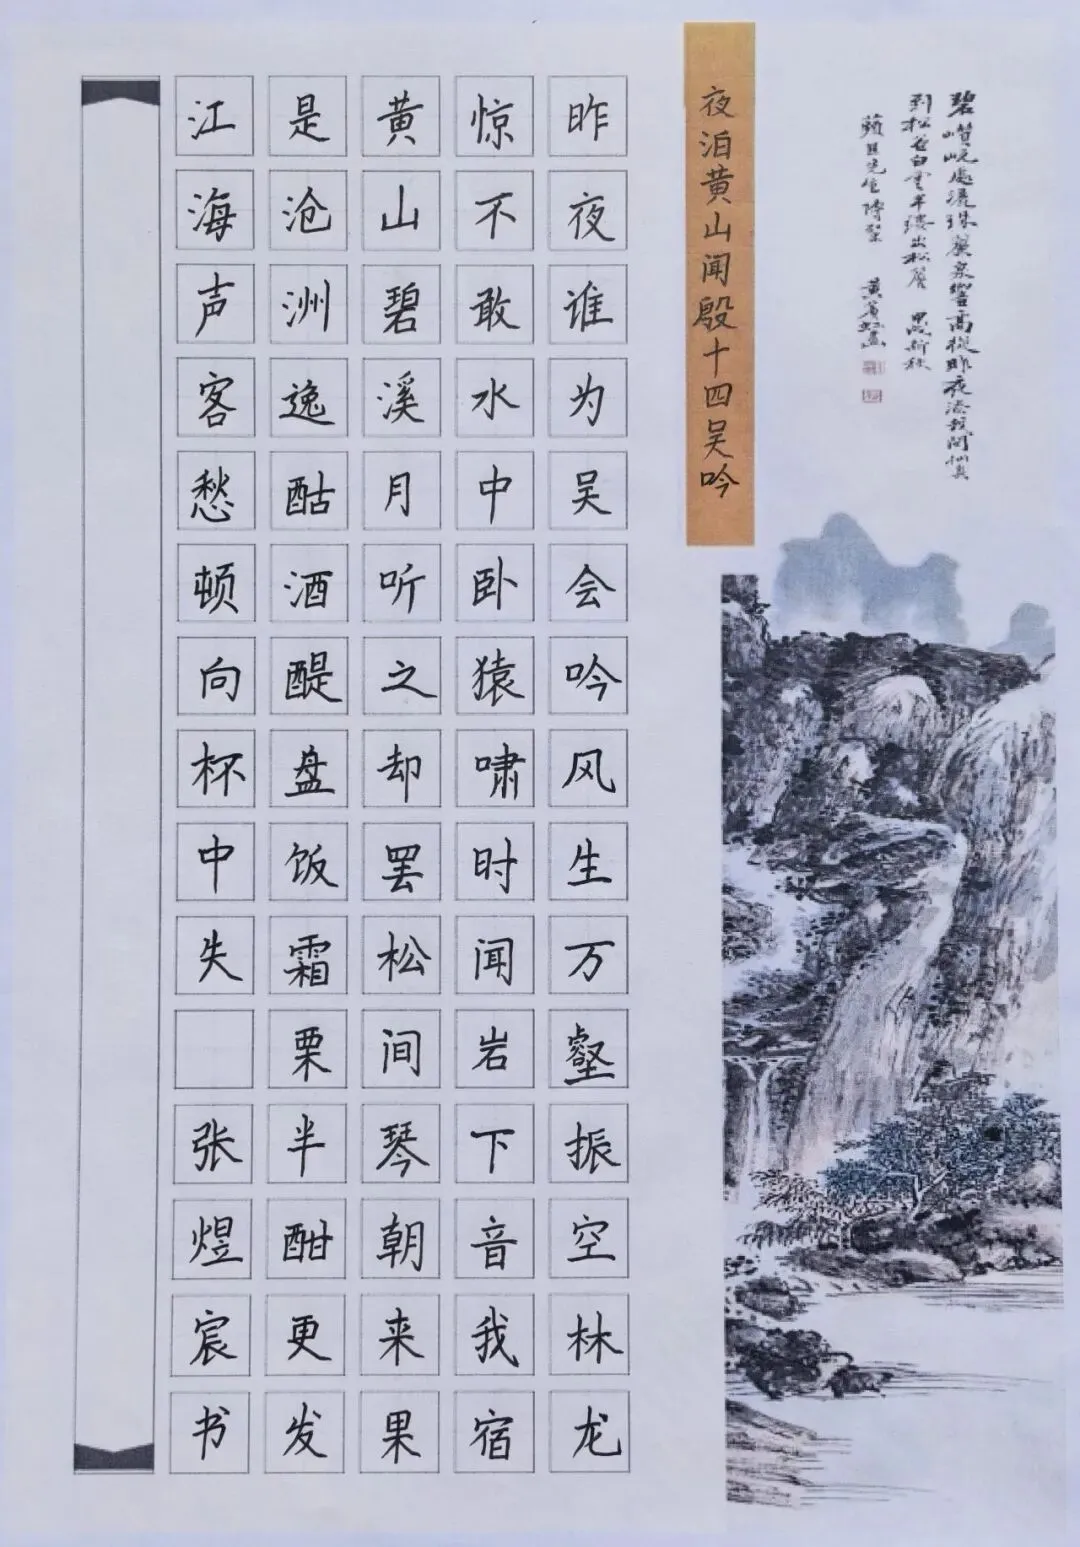 碧處泉響高從昨夜
松白雲半縷出松層
先生 黃賓虹畫
夜泊黄山闻殷十四吴吟
昨夜谁为吴会吟风生万壑振空林龙
惊不敢水中卧猿啸时闻岩下音我宿
黄山碧溪月听之却罢松间琴朝来果
是沧洲逸酤酒醍盘饭霜栗半酣更发
江海声客愁顿向杯中失 张煜宸书